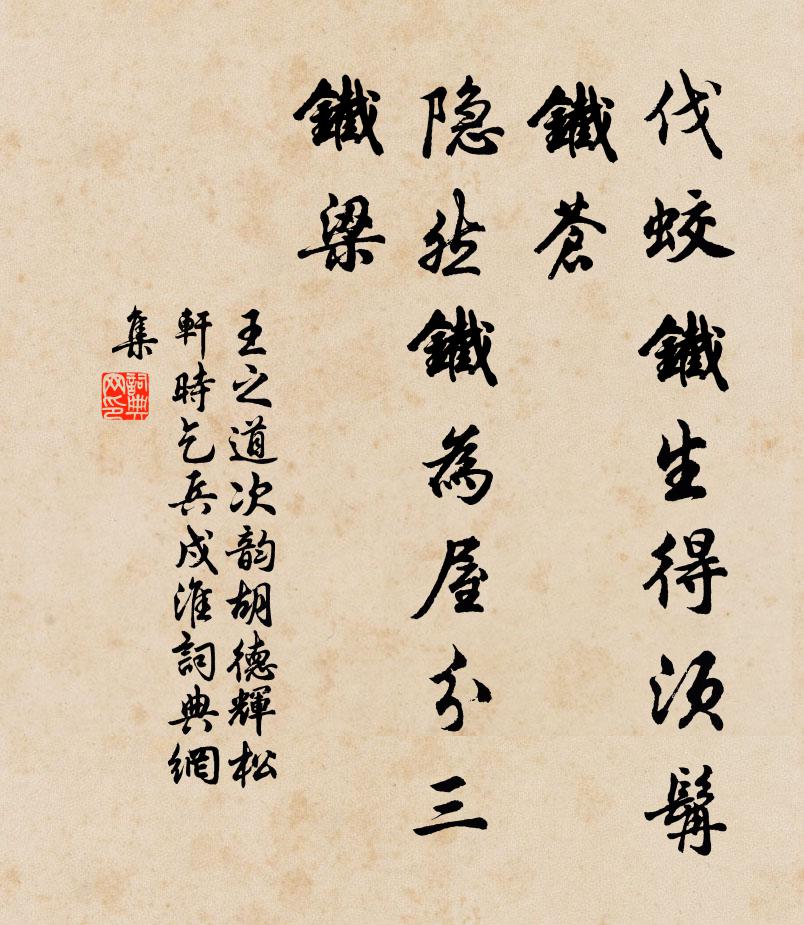 伐蛟鐵生得須髯
鐵蒼
隐然鐵為屋分三
鐵梁
王之道次韵胡德輝松
軒時乞兵戍淮詞典網
集
詞典網印